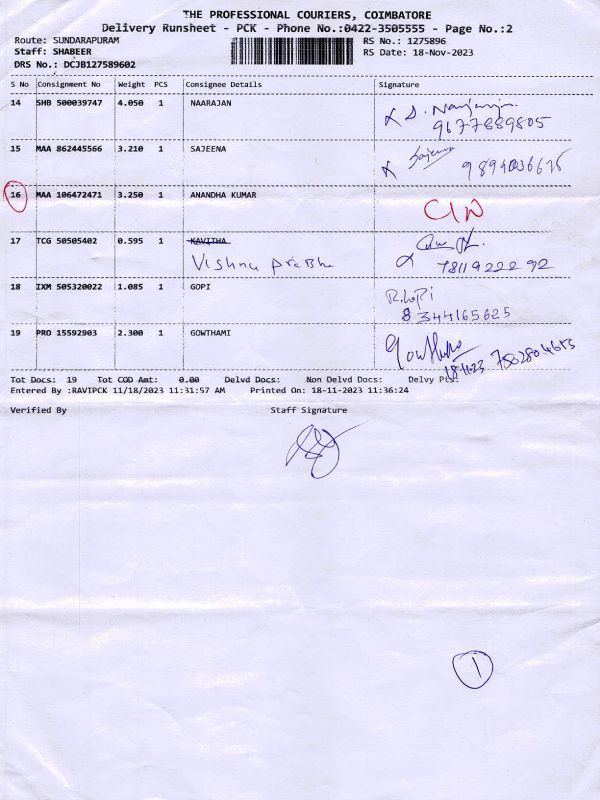 THE PROFESSIONAL COURIERS, COIMBATORE
Delivery Runsheet - PCK - Phone No.:0422-3505555 - Page No.:2
Route: SUNDARAPURAM RS No.: 1275896
Staff: SHABEER RS Date: 18-Nov-2023
DRS No.: DCJB127589602
S No Consignment No Weight PCS Consignee Details Signature
14 SHB 500039747 4.050 1 NAARAJAN
9677889805
15 MAA 862445566 3.210 1 SAJEENA Sajeena
16 MAA 106472471 3.250 1 ANANDHA KUMAR
17 TCG 50505402 0.595 1 KAVITHA
Vishnu Prabhu 78119222 92
18 IXM 505320022 1.085 1 GOPI R.Gopi
8344165625
19 PRO 15592903 2.300 1 GOWTHAMI
18.11.23
Tot Docs: 19 Tot COD Amt: 0.00 Delvd Docs: Non Delvd Docs: Delvy Pts:
Entered By :RAVIPCK 11/18/2023 11:31:57 AM Printed On: 18-11-2023 11:36:24
Verified By Staff Signature
1